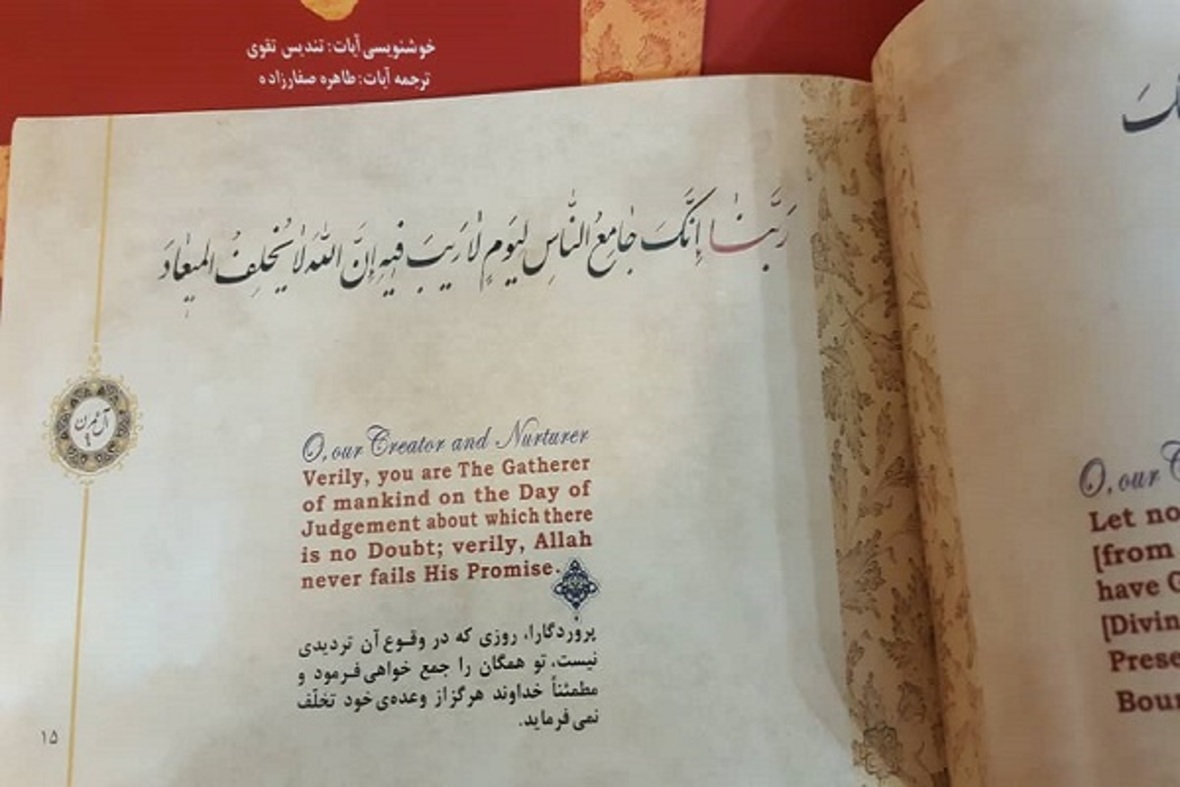 خوشنویسی آیات: تندیس تقوی
ترجمه آیات: طاهره صفارزاده
رَبَّنا إِنَّكَ جامِعُ النّاسِ لِيَومٍ لا رَيبَ فيهِ إِنَّ اللّهَ لا يُخلِفُ الميعادَ
آل عمرن
۹
O, our Creator and Nurturer
Verily, you are The Gatherer
of mankind on the Day of
Judgement about which there
is no Doubt; verily, Allah
never fails His Promise.
پروردگارا، روزی که در وقوع آن تردیدی
نیست، تو همگان را جمع خواهی فرمود و
مطمئناً خداوند هرگز از وعده‌ی خود تخلّف
نمی فرماید.
۱۵
O, our
Let no
[from
have G
[Divin
Prese
Boun